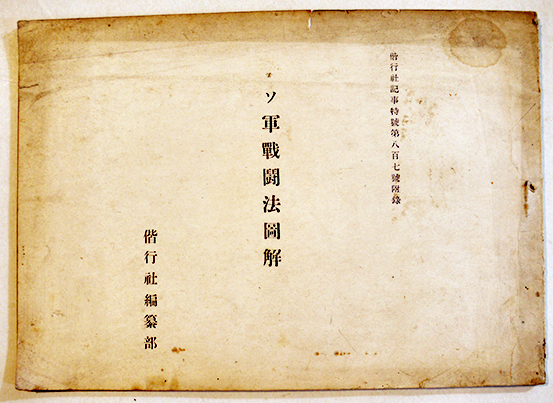 偕行社記事特號第八百七號附錄
ソ軍戰鬪法圖解
偕行社編纂部